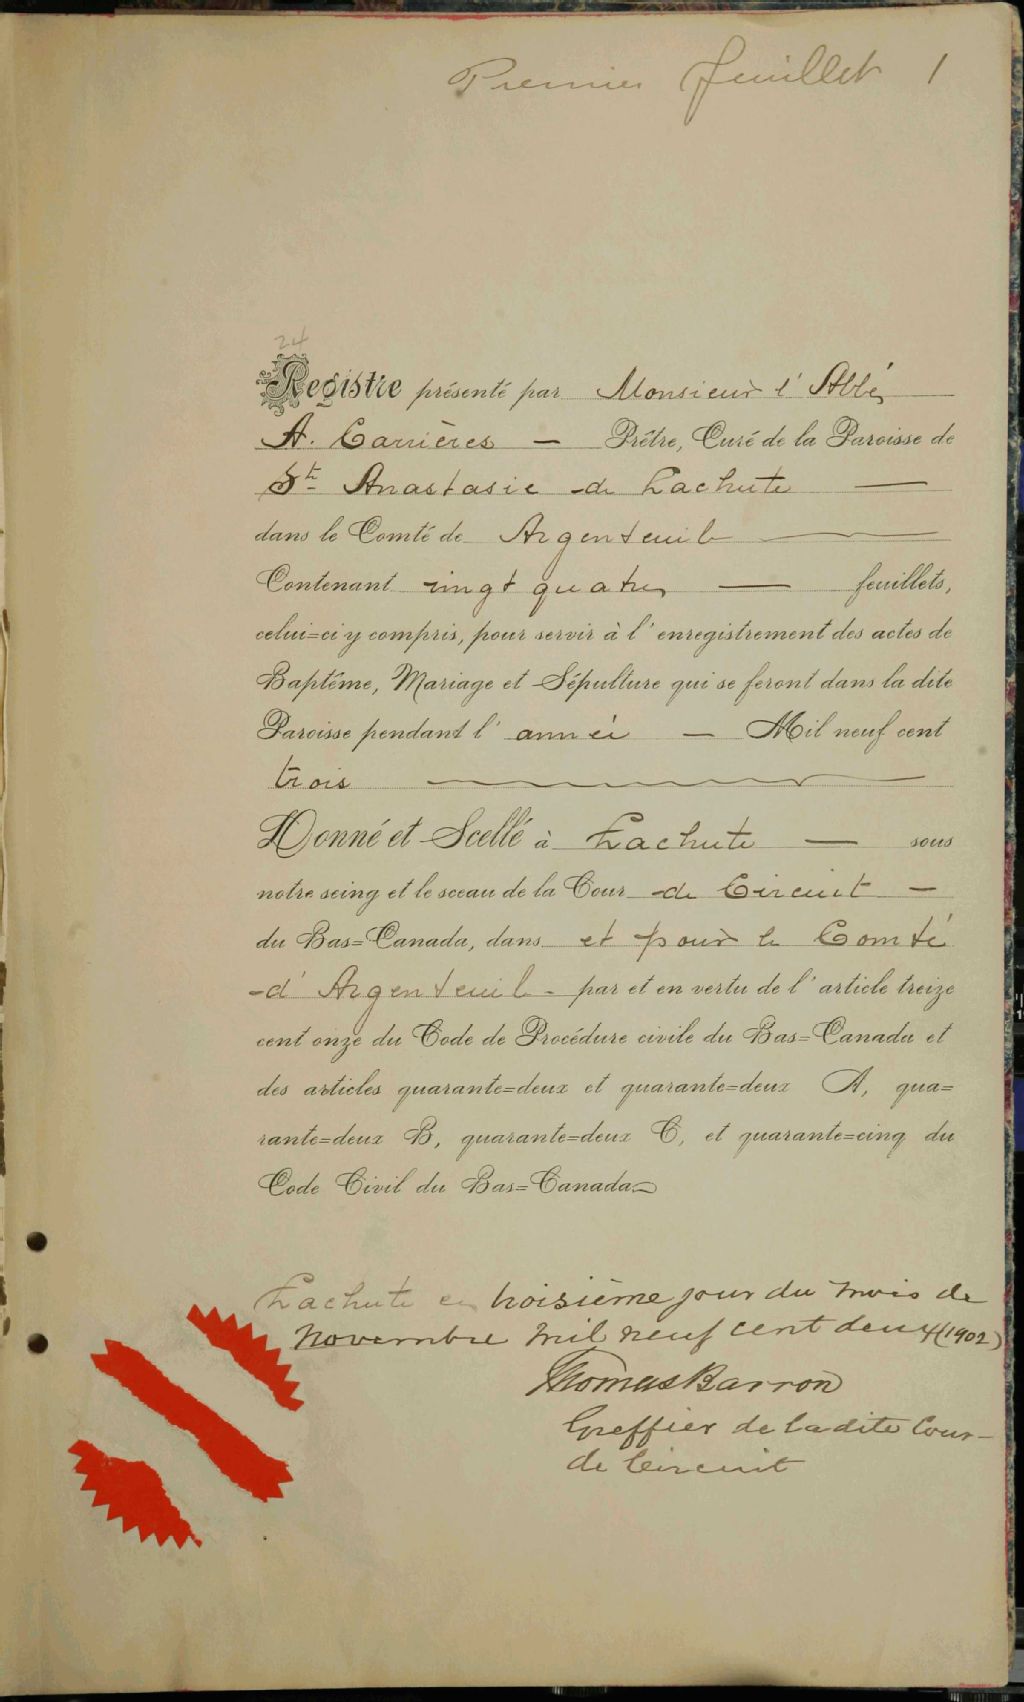 Premier feuillet 1
24
Registre présenté par Monsieur l'Abbé
A. Carrières — Prêtre, Curé de la Paroisse de
Ste Anastasie de Lachute —
dans le Comté de Argenteuil
Contenant vingt quatre — feuillets,
celui=ci y compris, pour servir à l'enregistrement des actes de
Baptême, Mariage et Sépulture qui se feront dans la dite
Paroisse pendant l'année — Mil neuf cent
trois
Donné et Scellé à Lachute — sous
notre seing et le sceau de la Cour de Circuit —
du Bas=Canada, dans et pour le Comté
d'Argenteuil - par et en vertu de l'article treize
cent onze du Code de Procédure civile du Bas=Canada et
des articles quarante=deux et quarante=deux A, qua=
rante=deux B, quarante=deux C, et quarante=cinq du
Code Civil du Bas=Canada
Lachute ce troisième jour du mois de
Novembre mil neuf cent deux (1902)
Thomas Barron
Greffier de la dite Cour
de Circuit